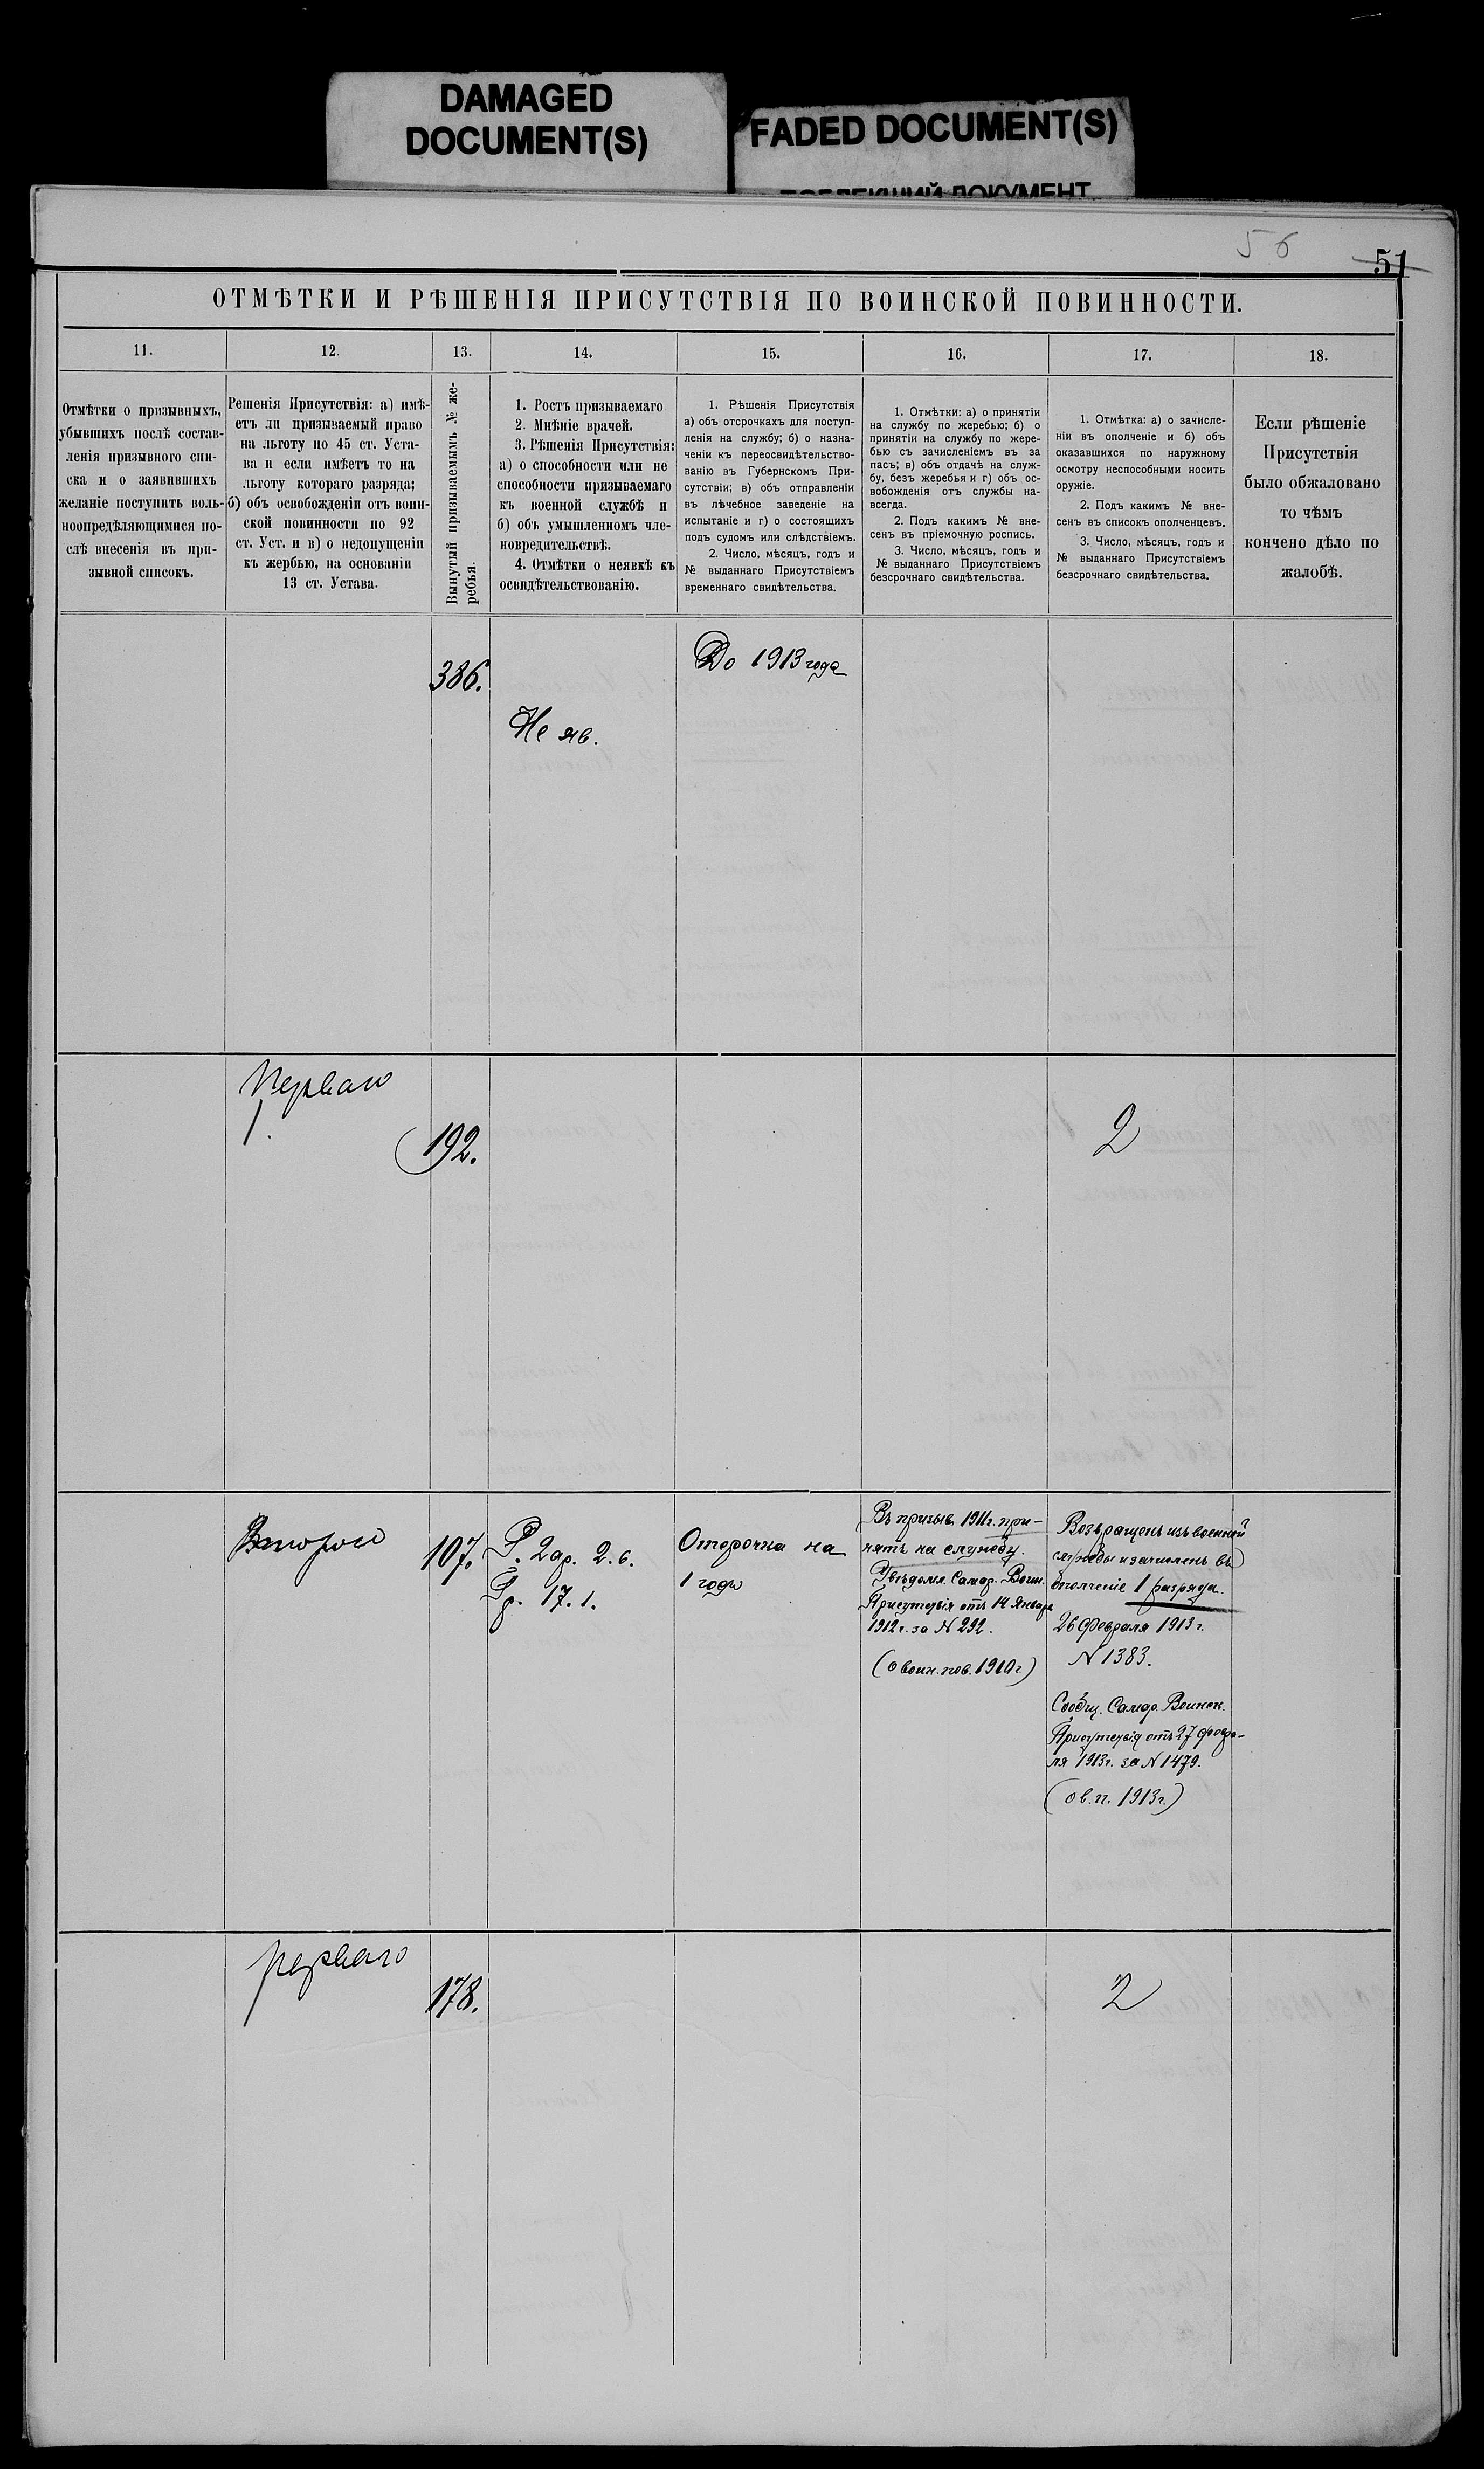 DAMAGED
DOCUMENT(S)
FADED DOCUMENT(S)
ПОБЛЕКШИЙ ДОКУМЕНТ
56
51
ОТМѢТКИ И РѢШЕНІЯ ПРИСУТСТВІЯ ПО ВОИНСКОЙ ПОВИННОСТИ.
11.
12.
13.
14.
15.
16.
17.
18.
Отмѣтки о призывныхъ,
убывшихъ послѣ состав-
ленія призывного спи-
ска и о заявившихъ
желаніе поступить воль-
ноопредѣляющимися по-
слѣ внесенія въ при-
зывной списокъ.
Решенія Присутствія: а) имѣ-
етъ ли призываемый право
на льготу по 45 ст. Уста-
ва и если имѣетъ то на
льготу котораго разряда;
б) объ освобожденіи отъ воин-
ской повинности по 92
ст. Уст. и в) о недопущеніи
къ жербью, на основаніи
13 ст. Устава.
Вынутый призываемымъ № же-
ребья.
1. Ростъ призываемаго
2. Мнѣніе врачей.
3. Рѣшенія Присутствія:
а) о способности или не
способности призываемаго
къ военной службѣ и
б) объ умышленномъ чле-
новредительствѣ.
4. Отмѣтки о неявкѣ къ
освидѣтельствованію.
1. Рѣшенія Присутствія
а) объ отсрочкахъ для поступ-
ленія на службу; б) о назна-
ченіи къ переосвидѣтельство-
ванію въ Губернскомъ При-
сутствіи; в) объ отправленіи
въ лѣчебное заведеніе на
испытаніе и г) о состоящихъ
подъ судомъ или слѣдствіемъ.
2. Число, мѣсяцъ, годъ и
№ выданнаго Присутствіемъ
временнаго свидѣтельства.
1. Отмѣтки: а) о принятіи
на службу по жеребью; б) о
принятіи на службу по жере-
бью съ зачисленіемъ въ за
пасъ; в) объ отдачѣ на служ-
бу, безъ жеребья и г) объ ос-
вобожденія отъ службы на-
всегда.
2. Подъ какимъ № вне-
сенъ въ пріемочную роспись.
3. Число, мѣсяцъ, годъ и
№ выданнаго Присутствіемъ
безсрочнаго свидѣтельства.
1. Отмѣтка: а) о зачисле-
ніи въ ополченіе и б) объ
оказавшихся по наружному
осмотру неспособными носить
оружіе.
2. Подъ какимъ № вне-
сенъ въ списокъ ополченцевъ.
3. Число, мѣсяцъ, годъ и
№ выданнаго Присутствіемъ
безсрочнаго свидѣтельства.
Если рѣшеніе
Присутствія
было обжаловано
то чѣмъ
кончено дѣло по
жалобѣ.
386.
Не яв.
До 1913 года
Перваго
1.
192.
2
Второго
107.
Р. 2 ар. 2. в.
Гр. 17. 1.
Отсрочка на
1 годъ
Въ призывъ 1911г. при-
нятъ на службу.
Увѣдомл. Самар. Воин.
Присутствія отъ 14 Января
1912 г. за № 292.
(о воин. пов. 1910 г)
Возвращенъ изъ военной
службы и зачисленъ въ
ополченіе 1 разряда.
26 Февраля 1913 г.
№ 1383.
Сообщ. Самар. Воинск.
Присутствія отъ 27 февра-
ля 1913г. за № 1479.
(о в. п. 1913г.)
перваго
178.
2